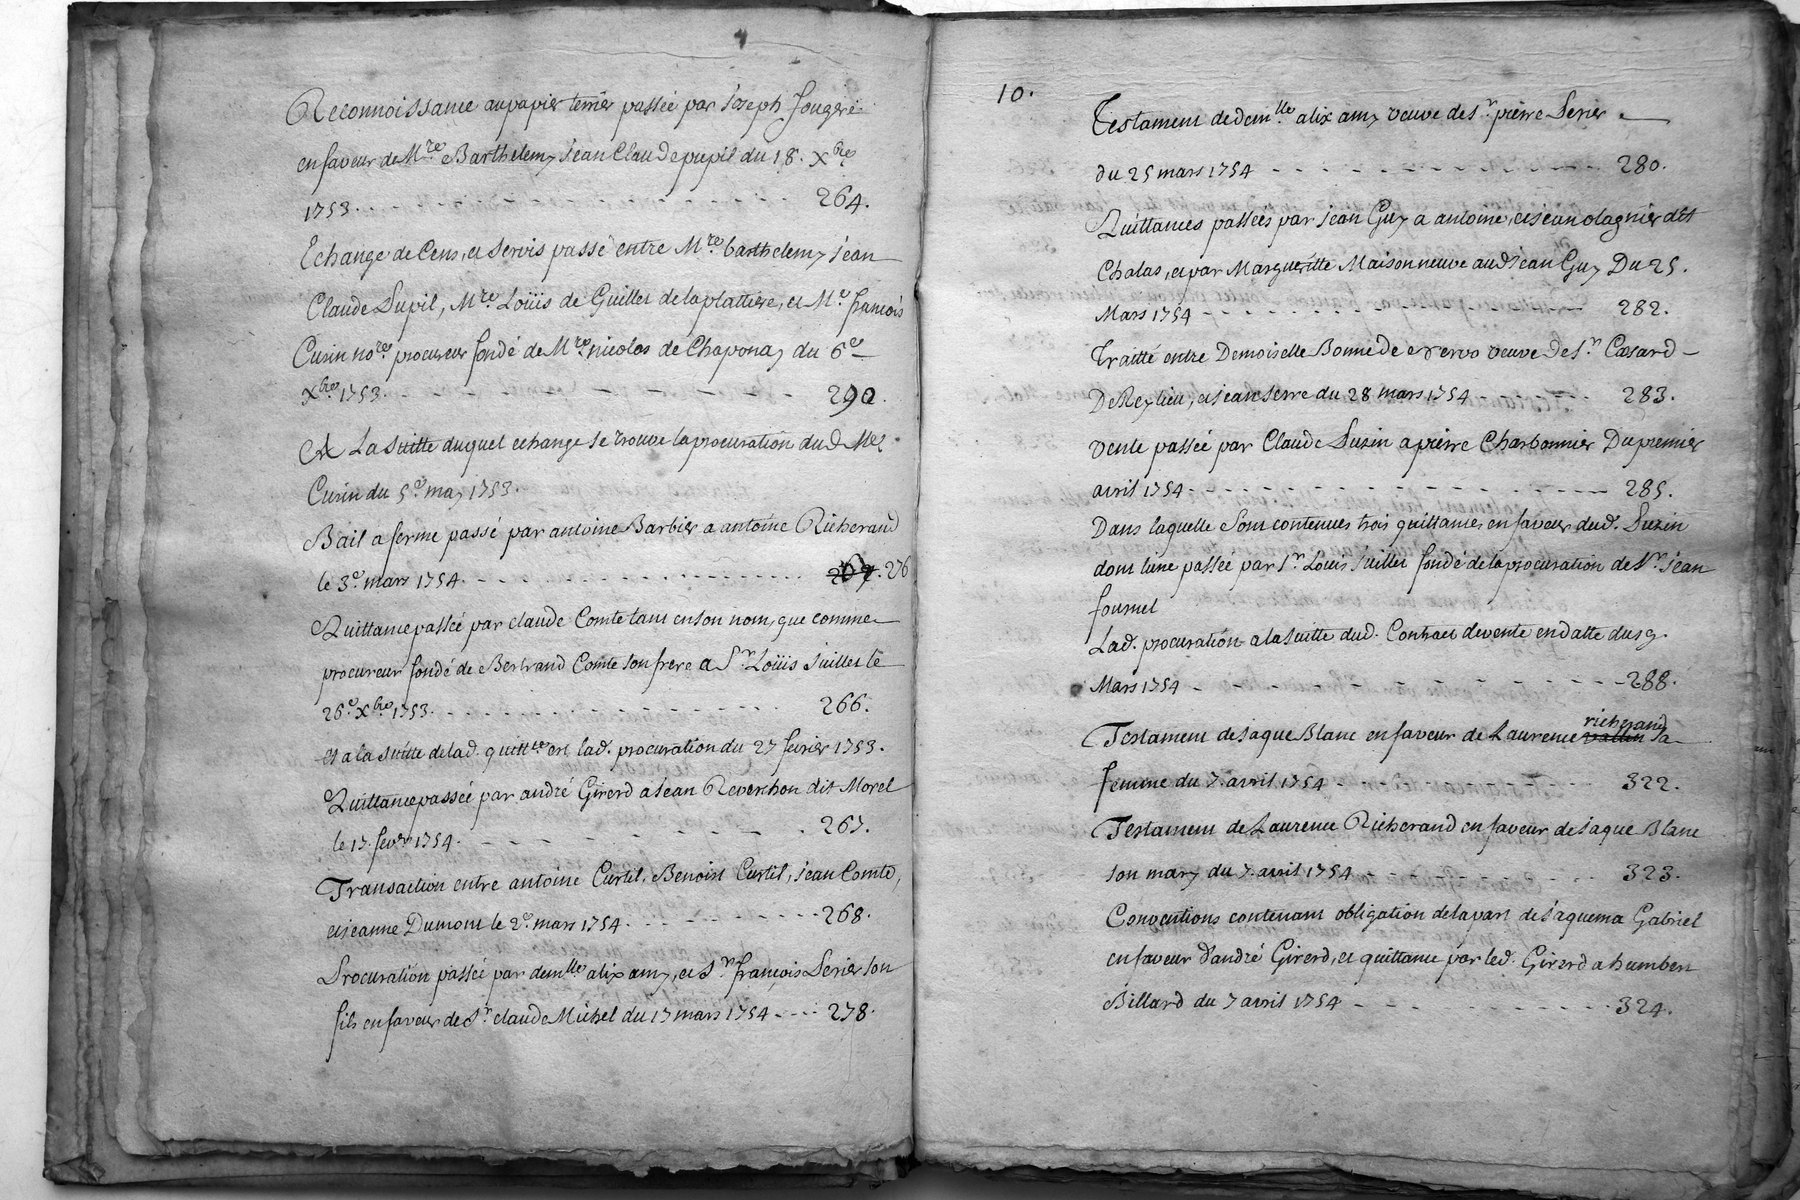 Reconnoissance au papier terrier passée par joseph fougere
en faveur de Mre Barthelemy jean Claude pupil du 18. Xbre
1753. - - - - - - - - 264.
Echange de Cens, et servis passé entre Mre barthelemy jean
Claude Pupil, Mre Loüis de Guillet de la plattiere, et Me françois
Cusin nore procureur fondé de Mre nicolas de Chaponay du 6e
Xbre 1753. - - - - - - - - 290.
A La suitte duquel echange se trouve la procuration dud. Me
Cusin du 5e may 1753.
Bail a ferme passé par antoine Barbier a antoine Richerand
le 3e mars 1754. - - - - - - - - 276
Quittance passée par claude Comte tant en son nom, que comme
procureur fondé de Bertrand Comte son frere a Sr Loüis juillet le
26e Xbre 1753. - - - - - - - - 266.
et a la suitte de lad. quittce est lad. procuration du 27 fevrier 1753.
Quittance passée par andré Girerd a jean Reverchon dit Morel
le 17. fevr 1754. - - - - - - - - 267.
Transaction entre antoine Curtil, Benoist Curtil, jean Comte,
et jeanne Dumont le 2e mars 1754. - - - - - - - - 268.
Procuration passée par demlle alix amy, et Sr françois Perier son
fils en faveur de Sr claude Michel du 17 mars 1754 - - - - 278.
10.
Testament de demlle alix amy veuve de Sr pierre Perier
du 25 mars 1754 - - - - - - - - 280.
Quittances passées par jean Guy a antoine, et jean olagnier dit
Chalas, et par Margueritte Maisonneuve aud. jean Guy Du 25.
Mars 1754 - - - - - - - - 282.
Traitté entre Demoiselle Bonne de veuve de Sr Cæsard
De Reylieu, et jean serre du 28 mars 1754 - - - - 283.
Vente passée par Claude Suzin a pierre Charbonnier Du premier
avril 1754 - - - - - - - - 285.
Dans laquelle sont contenues trois quittances en faveur dud. Suzin
dont l'une passée par Sr Louis juillet fondé de la procuration de Sr jean
fournel
Lad. procuration a la suitte dud. Contract de vente en datte du 19.
Mars 1754 - - - - - - - - 288.
Testament de jaque Blanc en faveur de Laurence vallin richerand sa
femme du 7. avril 1754 - - - - - - - - 322.
Testament de Laurence Richerand en faveur de jaque Blanc
son mary du 7. avril 1754 - - - - - - - - 323.
Conventions contenant obligation de la part de jaquema Gabriel
en faveur d'andré Girerd, et quittance par led. Girerd a humbert
Billard du 7 avril 1754 - - - - - - - - 324.